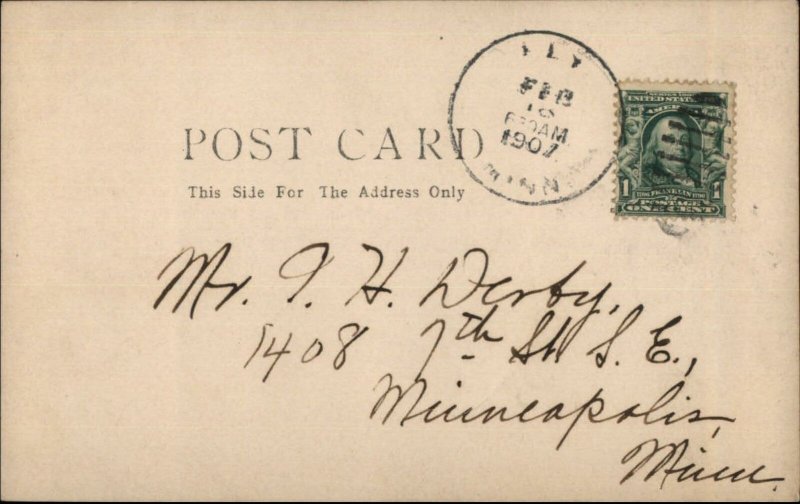 ELY
FEB
18
630AM
1907
MINN
SERIES 1902
UNITED STATES
AMERICA
1 FRANKLIN 1
POSTAGE
ONE CENT
POST CARD
This Side For The Address Only
Mr. I. H. Derby,
1408 7th St. S. E.,
Minneapolis,
Minn.